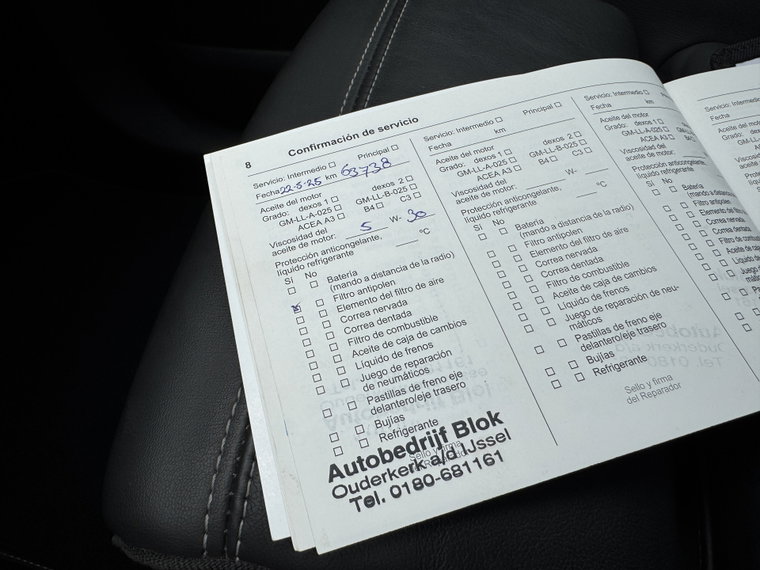 8 Confirmación de servicio
Servicio: Intermedio Principal
Fecha 22-5-25 km 63738
Aceite del motor
Grado: dexos 1 dexos 2
GM-LL-A-025 GM-LL-B-025
ACEA A3 B4 C3
Viscosidad del
aceite de motor: 5 W- 30
Protección anticongelante,
líquido refrigerante °C
Sí No
Batería
(mando a distancia de la radio)
Filtro antipolen
Elemento del filtro de aire
Correa nervada
Correa dentada
Filtro de combustible
Aceite de caja de cambios
Líquido de frenos
Juego de reparación
de neumáticos
Pastillas de freno eje
delantero/eje trasero
Bujías
Refrigerante
Sello y firma
Autobedrijf Blok
Ouderkerk a/d IJssel
Tel. 0180-681161
Servicio: Intermedio Principal
Fecha km
Aceite del motor
Grado: dexos 1 dexos 2
GM-LL-A-025 GM-LL-B-025
ACEA A3 B4 C3
Viscosidad del
aceite de motor: W-
Protección anticongelante,
líquido refrigerante °C
Sí No
Batería
(mando a distancia de la radio)
Filtro antipolen
Elemento del filtro de aire
Correa nervada
Correa dentada
Filtro de combustible
Aceite de caja de cambios
Líquido de frenos
Juego de reparación de neu-
máticos
Pastillas de freno eje
delantero/eje trasero
Bujías
Refrigerante
Sello y firma
del Reparador
Servicio: Intermedio
Fecha km
Aceite del motor
Grado: dexos 1
GM-LL-A-025
ACEA A3
Viscosidad del
aceite de motor:
Protección anticongelante,
líquido refrigerante
Sí No
Batería
(mando a
Filtro antipolen
Elemento del
Correa nervada
Correa dentada
Filtro de
Aceite de
Líquido de
Juego de
máticos
Pastillas
delantero
Bujías
Refrigerante
Servicio:
Fecha
Aceite del motor
Grado:
Viscosidad del
aceite de motor:
Protección
líquido refrigerante
Sí No